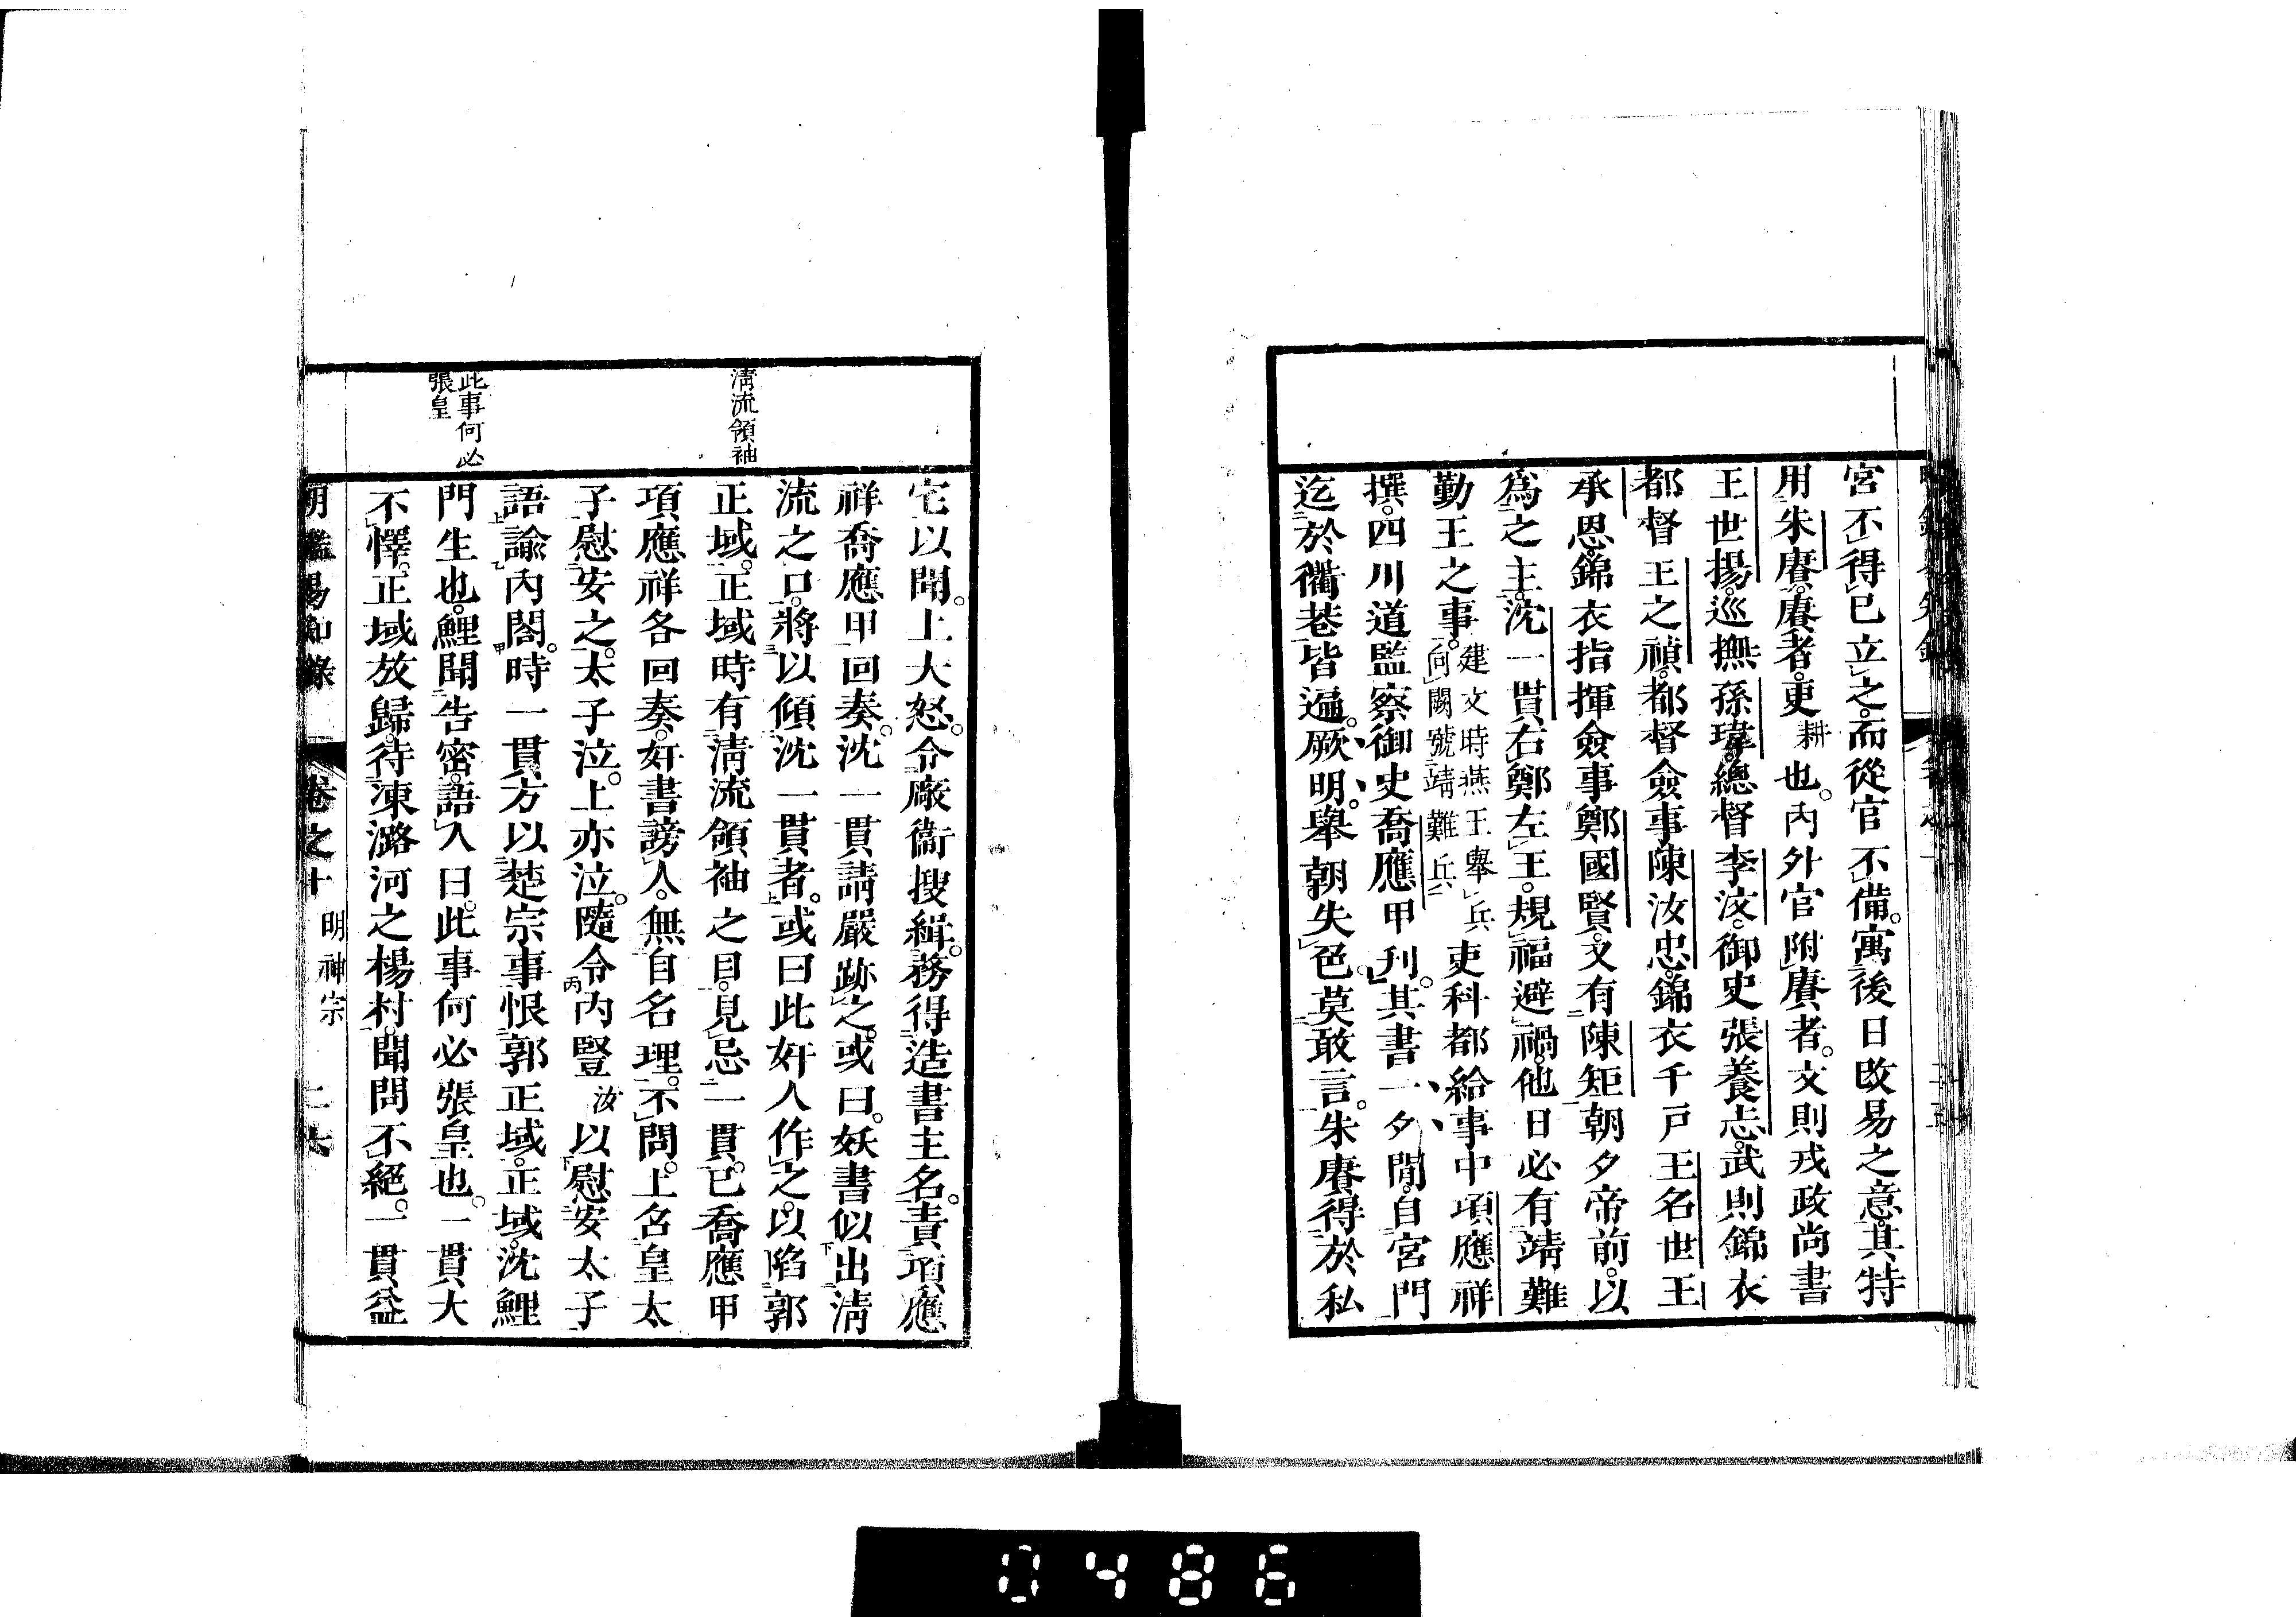 宮不得已立之。而從官不備。寓後日改易之意。其特
用朱賡。賡者。更耕也。內外官附賡者。文則戎政尚書
王世揚。巡撫孫瑋。總督李汶。御史張養志。武則錦衣
都督王之禎。都督僉事陳汝忠。錦衣千戸王名世王
承恩。錦衣指揮僉事鄭國賢。又有陳矩朝夕帝前。以
爲之主。沈一貫右鄭左王。規福避禍。他日必有靖難
勤王之事。建文時燕王舉兵向闕號靖難兵吏科都給事中項應祥
撰。四川道監察御史喬應甲刋。其書一夕閒。自宮門
迄於衢巷皆遍。厥明。舉朝失色。莫敢言。朱賡得於私
宅以聞。上大怒。令廠衞搜緝。務得造書主名。責項應
祥喬應甲回奏。沈一貫請嚴跡之。或曰。妖書似出淸
流之口。將以傾沈一貫者。或曰此奸人作之。以陷郭
正域。正域時有淸流領袖之目。見忌一貫。已喬應甲
項應祥各回奏。奸書謗人。無自名理。不問。上召皇太
子慰安之。太子泣。上亦泣。隨令內豎汝以慰安太子
語諭內閣。時一貫方以楚宗事恨郭正域。正域。沈鯉
門生也。鯉聞告密。語人曰。此事何必張皇也。一貫大
不懌。正域放歸。待凍潞河之楊村。聞問不絕。一貫益
淸流領袖
此事何必
張皇
明鑑易知錄 卷之十 明神宗 二六
0486